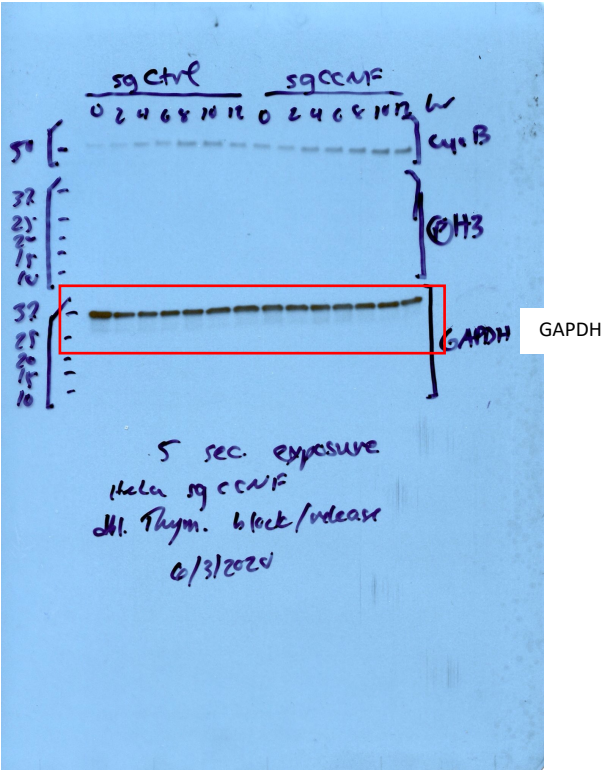 sgCtrl sgCCNF
0 2 4 6 8 10 12 0 2 4 6 8 10 12 hr
50 CycB
37
25
20
15
10
pH3
37
25
20
15
10
GAPDH
GAPDH
5 sec. exposure
Hela sgCCNF
dbl. Thym. block/release
6/3/2020